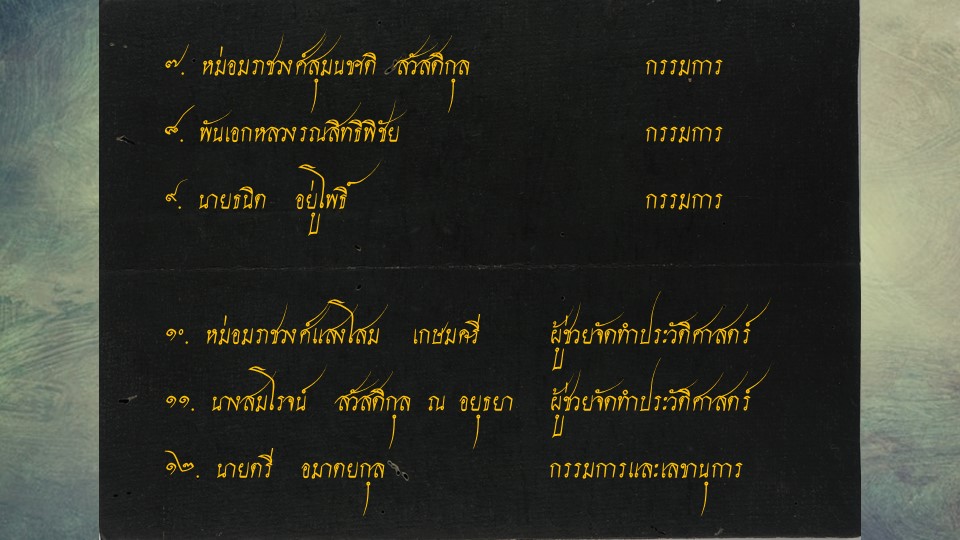 ๗. หม่อมราชวงศ์สุมนชาติ สวัสดิกุล กรรมการ
๘. พันเอกหลวงรณสิทธิพิชัย กรรมการ
๙. นายธนิต อยู่โพธิ์ กรรมการ
๑๐. หม่อมราชวงศ์แสงโสม เกษมศรี ผู้ช่วยจัดทำประวัติศาสตร์
๑๑. นางสมโรจน์ สวัสดิกุล ณ อยุธยา ผู้ช่วยจัดทำประวัติศาสตร์
๑๒. นายตรี อมาตยกุล กรรมการและเลขานุการ